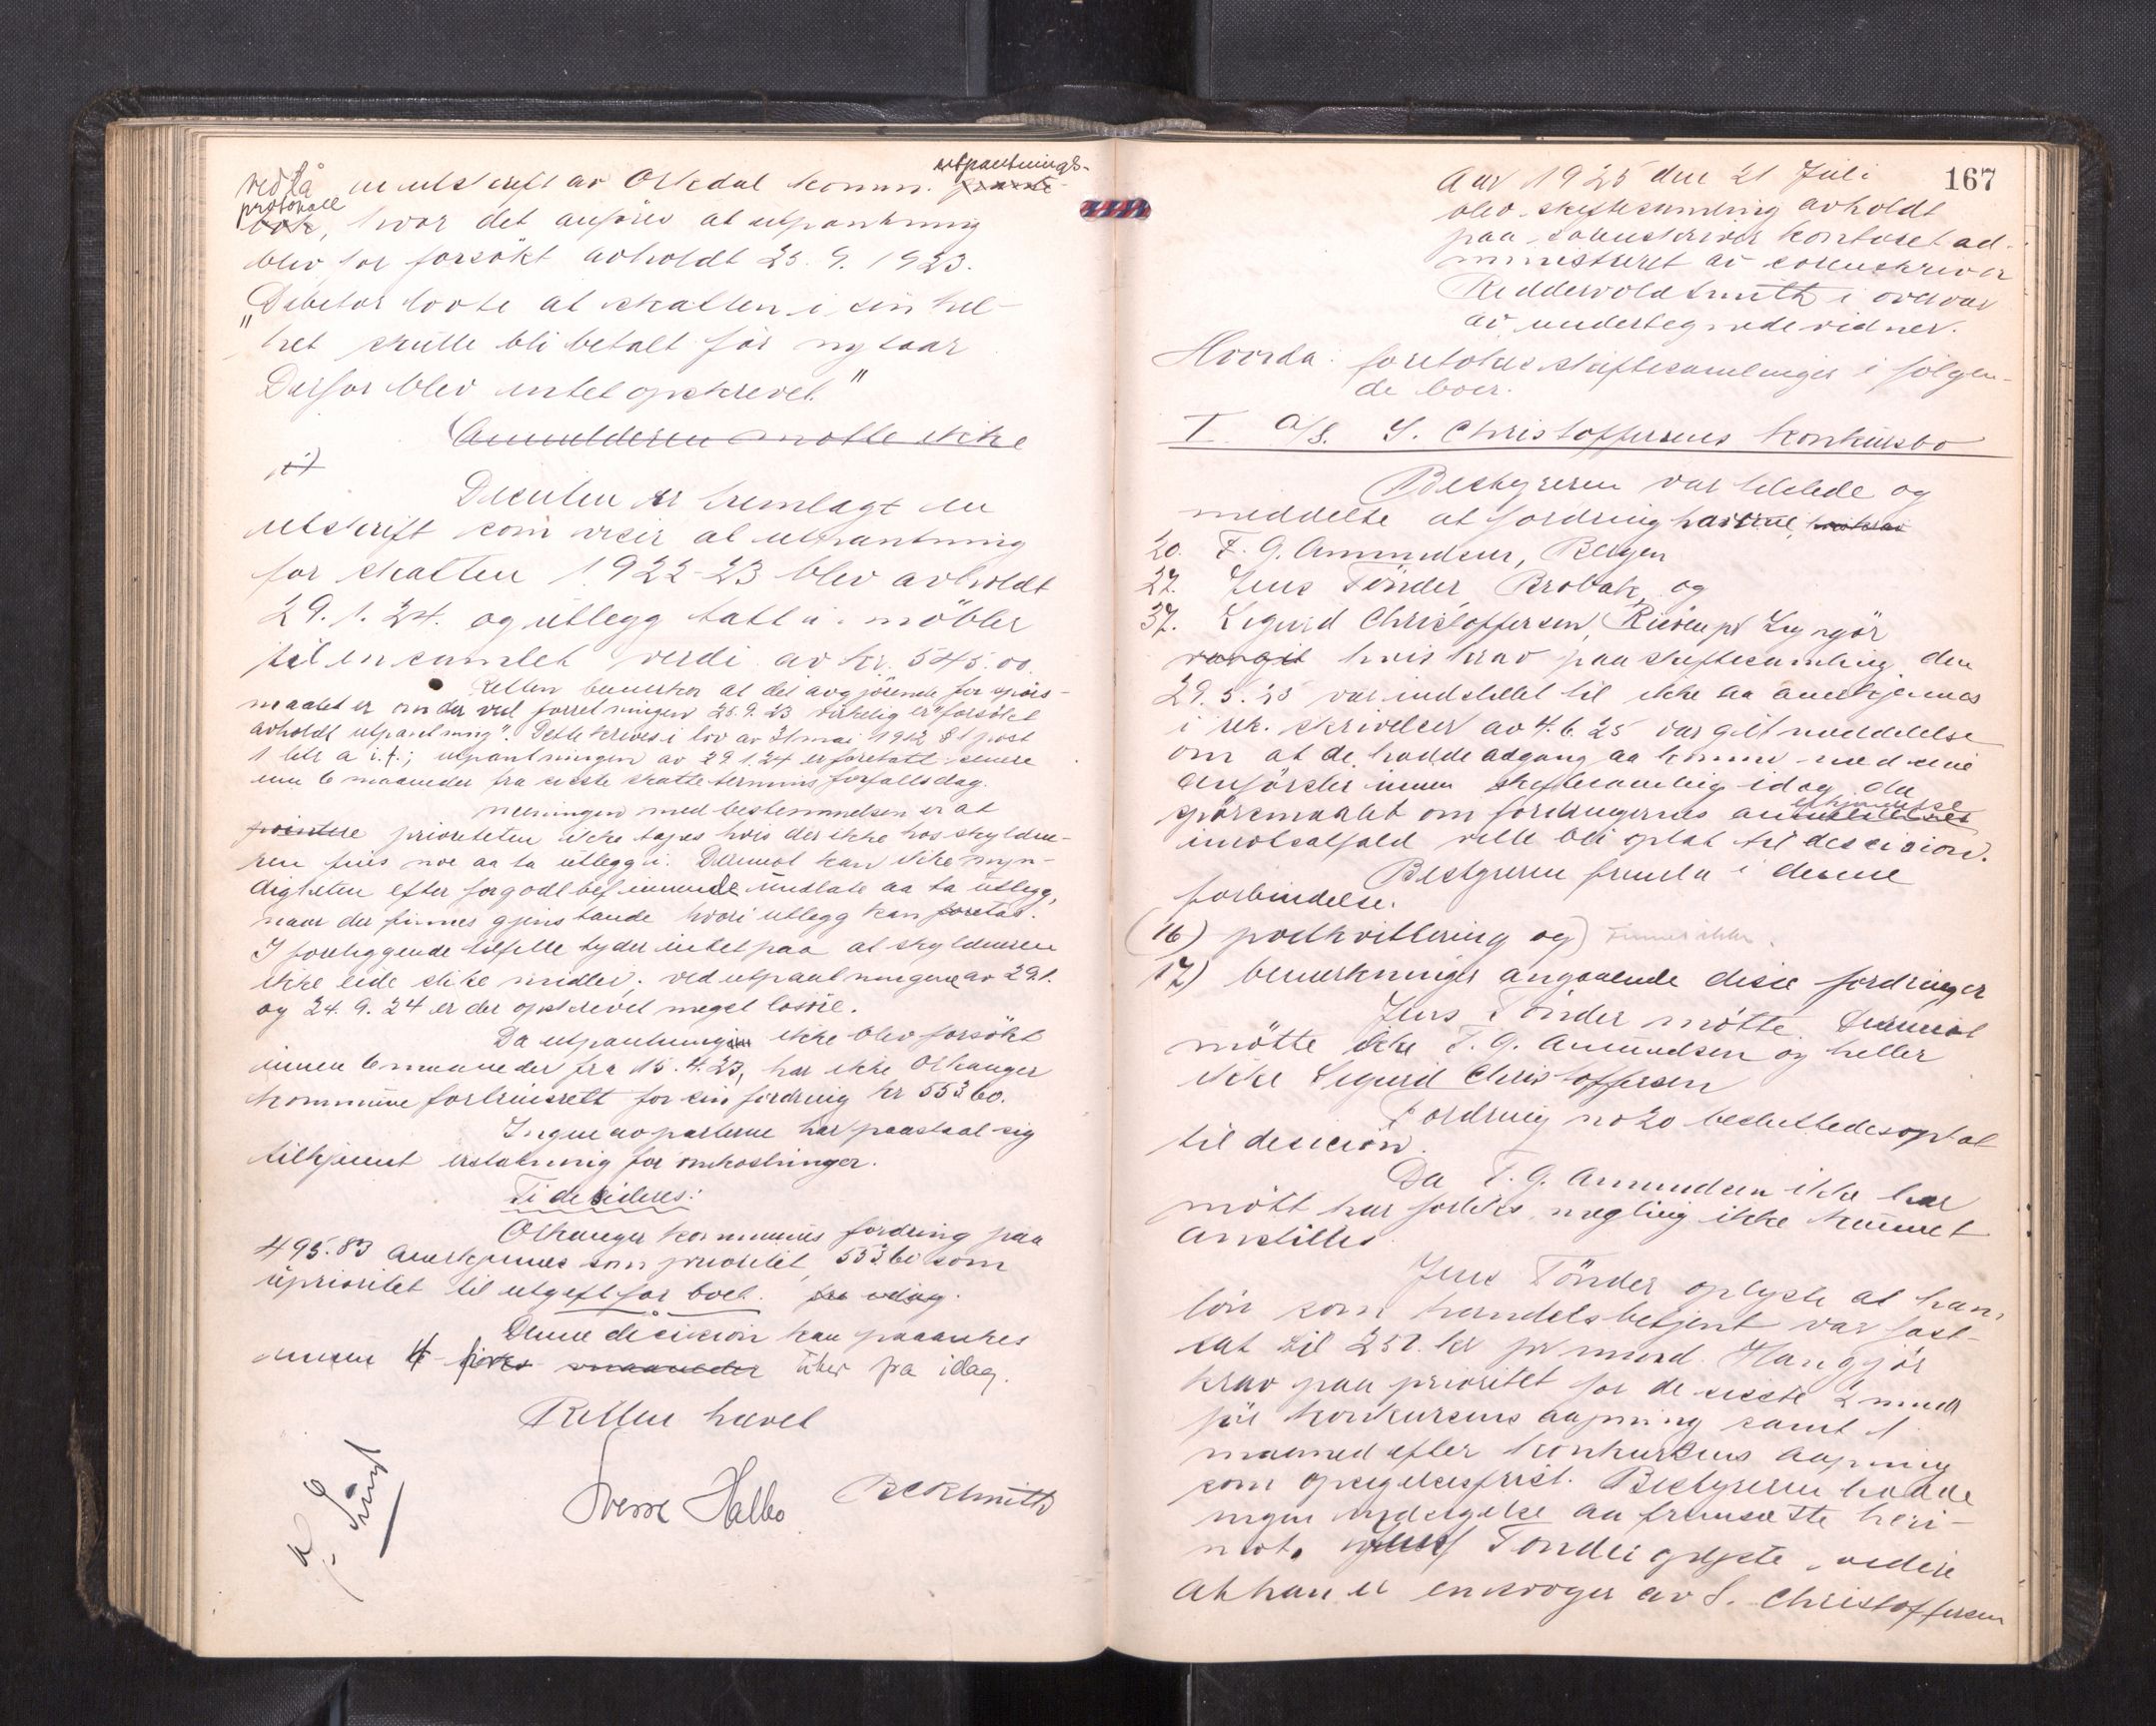 utpantnings-
vedtå en utskrift av Orkdal komm.
protokoll
bok, hvor det anføres at utpantning
blev for forsøkt avholdt 25. 9. 1923.
"Debitor lovte at skatten i sin hel-
het skulle bli betalt før nytaar
Derfor blev intet opskrevet."
Anmelderen møtte ikke
Decuten er fremlagt en
utskrift som viser at utpantning
for skatten 1922-23 blev avholdt
29. 1. 24. og utlegg tatt i møbler
til en samlet verdi av kr. 545.00.
Retten bemerker at det avgjørende for spørs-
maalet er om der ved forretningen 25.9.23 virkelig er "forsøkt
avholdt utpantning". Dette kreves i lov av 31 mai 1912 § 1 post
1 litr a i.f.; utpantningen av 29 1.24 er foretatt senere
enn 6 maaneder fra siste skattetermins forfallsdag.
meningen med bestemmelsen er at
prioriteten ikke tapes hvis der ikke hos skyldne-
ren fins noe aa ta utlegg i. Derimot kan ikke myn-
digheten efter forgodtbefinnende undlate aa ta utlegg,
naar der finnes gjenstande hvori utlegg kan foretas.
I foreliggende tilfelle tyder intet paa at skyldneren
ikke eide slike midler; ved utpantningene av 29 1.
og 24. 9. 24 er der opskrevet meget løsøre.
Da utpantningen ikke blev forsøkt
innen 6 maaneder fra 15. 4. 23, har ikke Orkanger
kommune fortrinsrett for sin fordring kr 553 60.
Ingen av parterne har paastaat sig
tilkjent erstatning for omkostninger.
Ti desideres:
Orkanger kommunes fordring paa
495.83 anerkjennes som prioritet, 553 60 som
uprioritet til utgift for boet.
Denne decision kan paaankes
innen 4 fire maaneder uker fra idag.
Retten hævet
Sverre Halbo RKSmith
Aar 1925 den 21 Juli 167
blev skiftesamling avholdt
paa sorenskriverkontoret ad-
ministreret av sorenskriver
Riddervold Smith i overvær
av undertegnede vidner.
Hvorda: foretokes skiftesamlinger i følgen-
de boer.
I. A/S. S. Christoffersens konkursbo
Bestyreren var tilstede og
meddelte at fordringshaverne,
20. F. G. Amundsen, Bergen
27. Jens Tønder, Brobak, og
37. Sigurd Christoffersen, Risøen pr Lyngør
hvis krav paa skiftesamling den
29. 5. 25 var indstillet til ikke aa anerkjennes
i rek. skrivelser av 4. 6. 25 var git meddelelse
om at de hadde adgang aa komme med sine
anførsler innen skiftesamling idag da
spørsmaalet om fordringernes anerkjennelse
imotsatfald ville bli optat til descision.
Bestyreren fremla i denne
forbindelse.
(16) postkvittering og) finnes ikke.
17) bemerkninger angaaende disse fordringer
Jens Tønder møtte. Derimot
møtte ikke F. G. Amundsen og heller
ikke Sigurd Christoffersen
Fordring no 20 besluttedes optat
til desicion.
Da F. G. Amundsen ikke har
møtt har forliks megling ikke kunnet
anstilles.
Jens Tønder oplyste at hans
løn som handelsbetjent var fast-
sat til 250. kr pr maaned. Han gjør
krav paa prioritet for de siste 2 mndr
før konkursens aapning samt 1
maaned efter konkursens aapning
som opsigelsesfrist. Bestyreren hadde
ingen indsigelse aa fremsætte heri-
mot. Tønder oplyste videre
at han er en svoger av S. Christoffersen